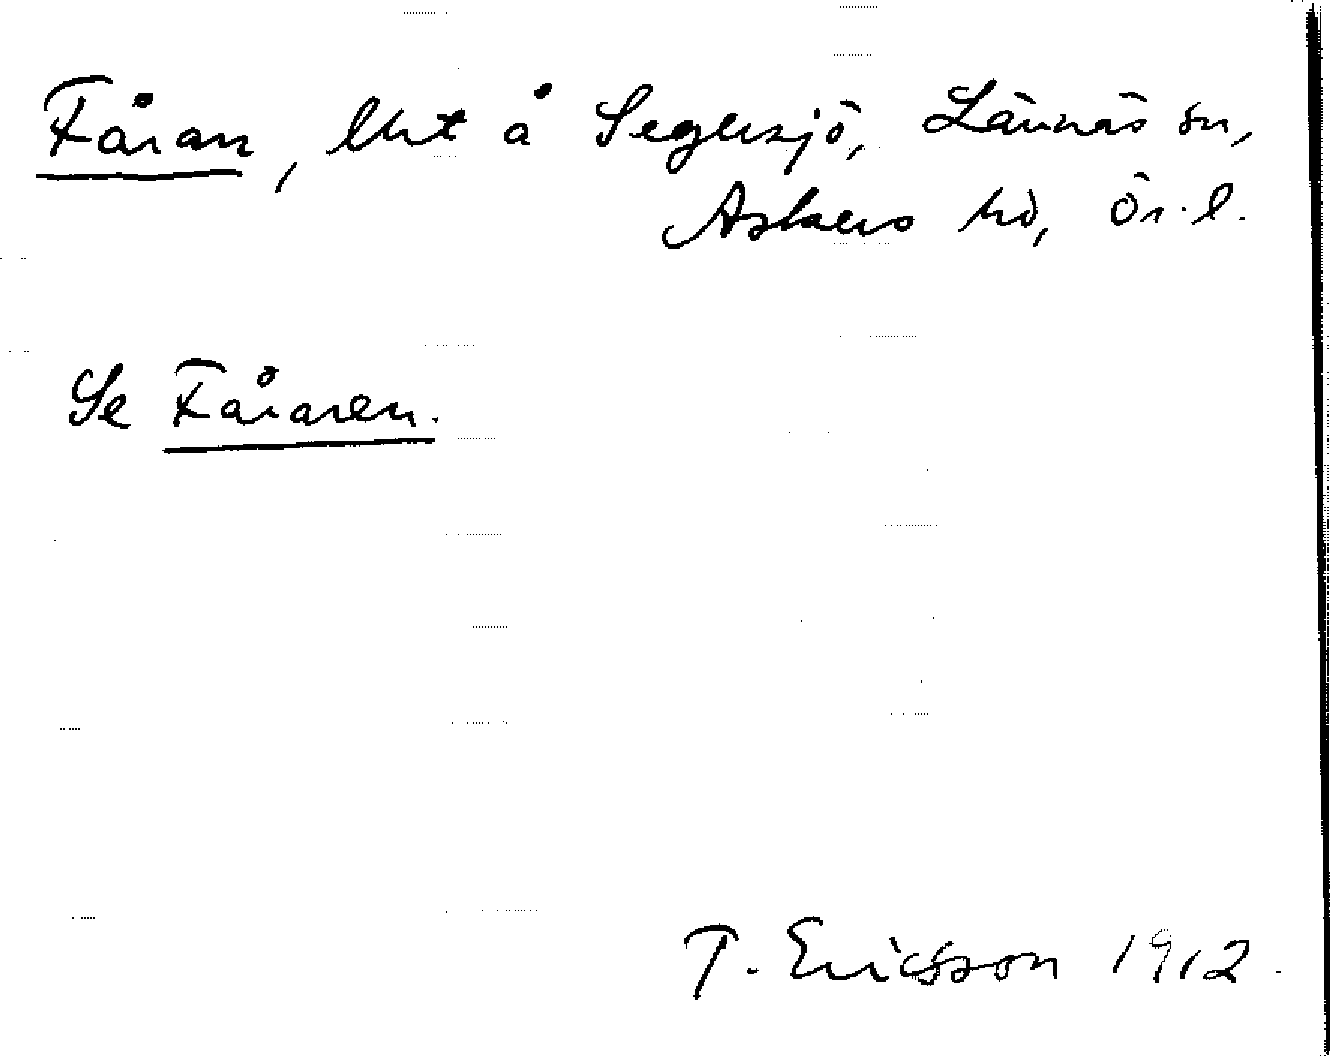 Fåran, lht å Segersjö, Lännäs sn,
Askers hd, Ör. l.
Se Fåraren.
T. Ericsson 1912.